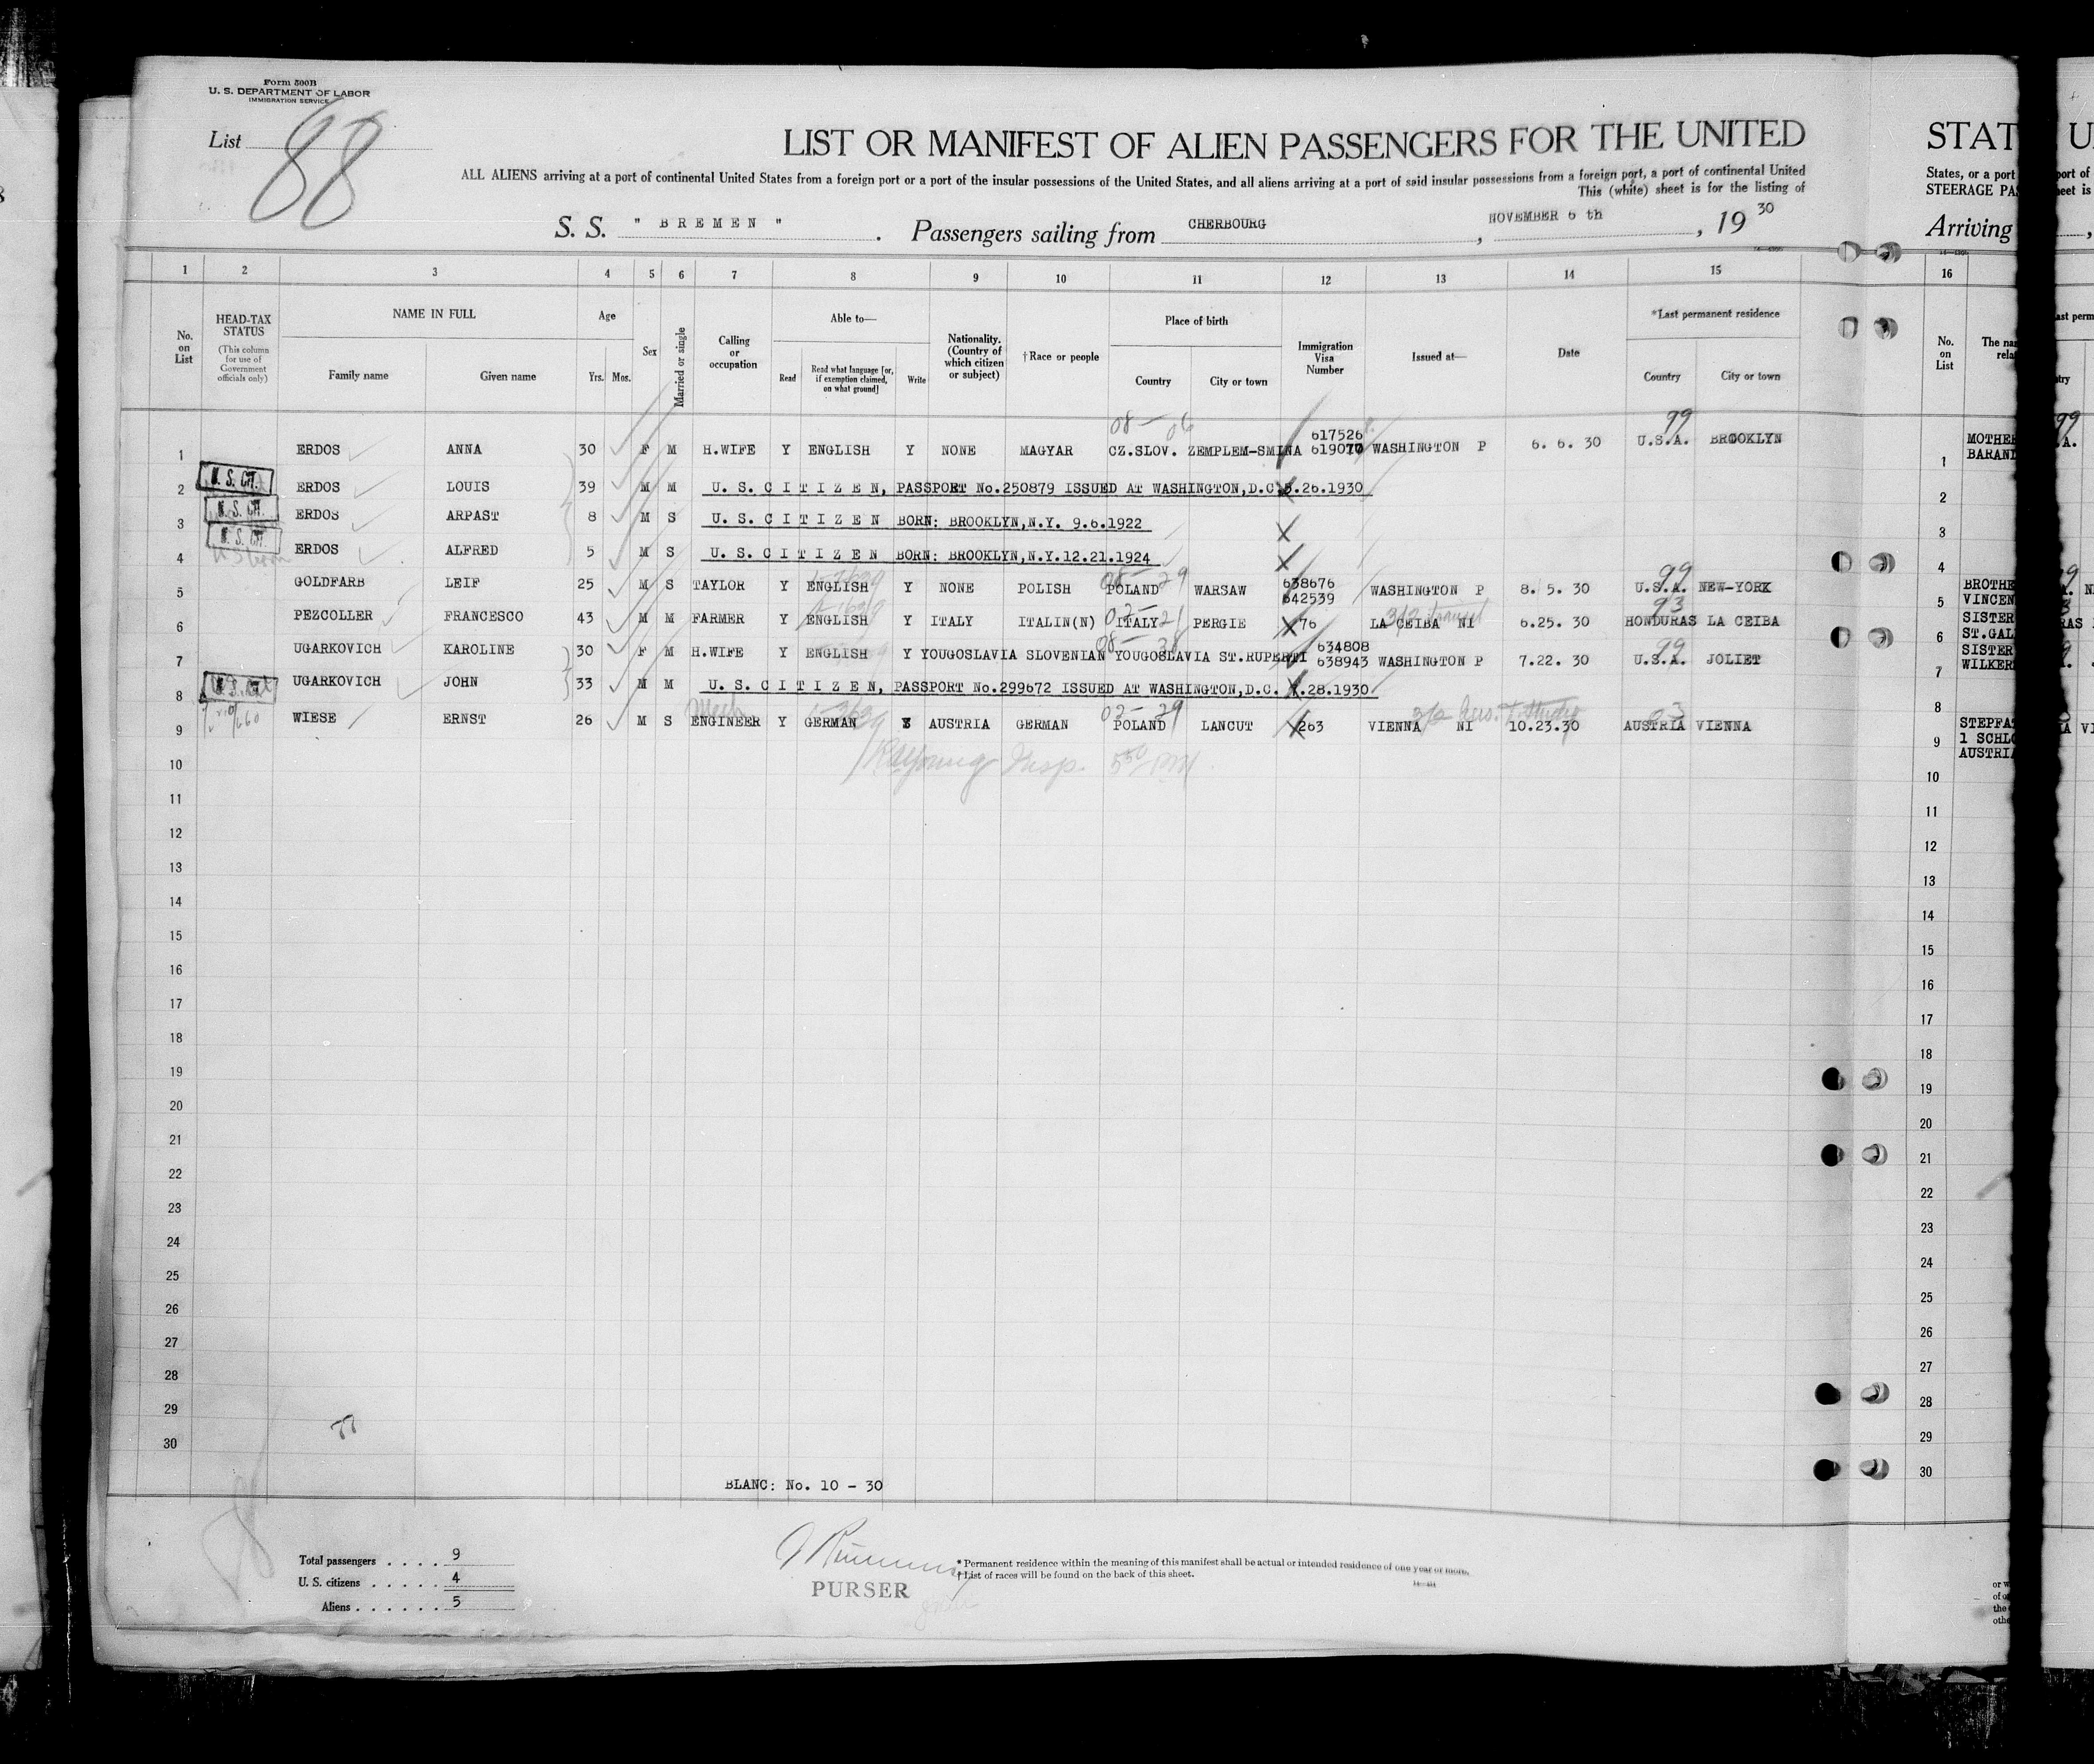 Form 500B
U. S. DEPARTMENT OF LABOR
IMMIGRATION SERVICE
List 88
LIST OR MANIFEST OF ALIEN PASSENGERS FOR THE UNITED
ALL ALIENS arriving at a port of continental United States from a foreign port or a port of the insular possessions of the United States, and all aliens arriving at a port of said insular possessions from a foreign port, a port of continental United
This (white) sheet is for the listing of
S. S. " BREMEN " . Passengers sailing from CHERBOURG , NOVEMBER 6 th , 19 30
1 2 3 4 5 6 7 8 9 10 11 12 13 14 15
No. on List
HEAD-TAX STATUS
(This column for use of Government officials only)
NAME IN FULL
Family name Given name
Age
Yrs. Mos.
Sex
Married or single
Calling or occupation
Able to—
Read Read what language [or, if exemption claimed, on what ground] Write
Nationality. (Country of which citizen or subject)
†Race or people
Place of birth
Country City or town
Immigration Visa Number
Issued at—
Date
*Last permanent residence
Country City or town
08— 06 99
617526
1 ERDOS ANNA 30 F M H.WIFE Y ENGLISH Y NONE MAGYAR CZ.SLOV. ZEMPLEM-SMINA WASHINGTON P 6. 6. 30 U.S.A. BROOKLYN
2 ERDOS LOUIS 39 M M U. S. CITIZEN, PASSPORT No.250879 ISSUED AT WASHINGTON,D.C. .26.1930
3 ERDOS ARPAST 8 M S U. S. CITIZEN BORN: BROOKLYN,N.Y. 9.6.1922
4 ERDOS ALFRED 5 M S U. S. CITIZEN BORN: BROOKLYN,N.Y.12.21.1924
08— 29 99
5 GOLDFARB LEIF 25 M S TAYLOR Y ENGLISH Y NONE POLISH POLAND WARSAW 638676 642539 WASHINGTON P 8. 5. 30 U.S.A. NEW-YORK
93
6 PEZCOLLER FRANCESCO 43 M M FARMER Y ENGLISH Y ITALY ITALIN(N) ITALY 21 PERGIE 76 LA CEIBA NI 6.25. 30 HONDURAS LA CEIBA
99
7 UGARKOVICH KAROLINE 30 F M H.WIFE Y ENGLISH Y YOUGOSLAVIA SLOVENIAN YOUGOSLAVIA ST.RUPERTI 634808 638943 WASHINGTON P 7.22. 30 U.S.A. JOLIET
8 UGARKOVICH JOHN 33 M M U. S. CITIZEN, PASSPORT No.299672 ISSUED AT WASHINGTON,D.C. .28.1930
Mech 03
9 WIESE ERNST 26 M S ENGINEER Y GERMAN AUSTRIA GERMAN POLAND LANCUT 263 VIENNA NI 10.23.30 AUSTRIA VIENNA
Insp. 5 50 PM
10
11
12
13
14
15
16
17
18
19
20
21
22
23
24
25
26
27
28
29
30
BLANC: No. 10 - 30
Total passengers . . . . 9
U. S. citizens . . . . . 4
Aliens . . . . . . 5
PURSER
* Permanent residence within the meaning of this manifest shall be actual or intended residence of one year or more.
† List of races will be found on the back of this sheet.
STAT
States, or a port
STEERAGE PA
Arriving
16
No. on List
1 MOTHE
BARAN
2
3
4
5 BROTHE
VINCEN
6 SISTER
ST.GAL
7 SISTER
WILKER
8
9 STEPFA
1 SCHLO
AUSTRIA
10
11
12
13
14
15
16
17
18
19
20
21
22
23
24
25
26
27
28
29
30